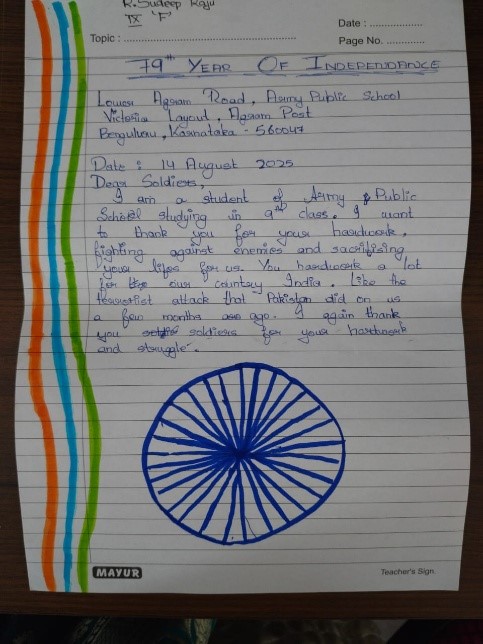 R. Sudeep Raju
IX 'F'
Date : ..................
Topic : ...............................................................
Page No. .............
79th YEAR OF INDEPENDANCE
Lower Agram Road, Army Public School
Victoria Layout, Agram Post
Bengaluru, Karnataka - 560047
Date : 14 August 2025
Dear Soldiers,
I am a student of Army Public
School studying in 9th class. I want
to thank you for your hardwork,
fighting against enemies and sacrifising
your lifes for us. You hardwork a lot
for our country India. Like the
terrorist attack that Pakistan did on us
a few months ago. I again thank
you soldiers for your hardwork
and struggle.
MAYUR
Teacher's Sign.